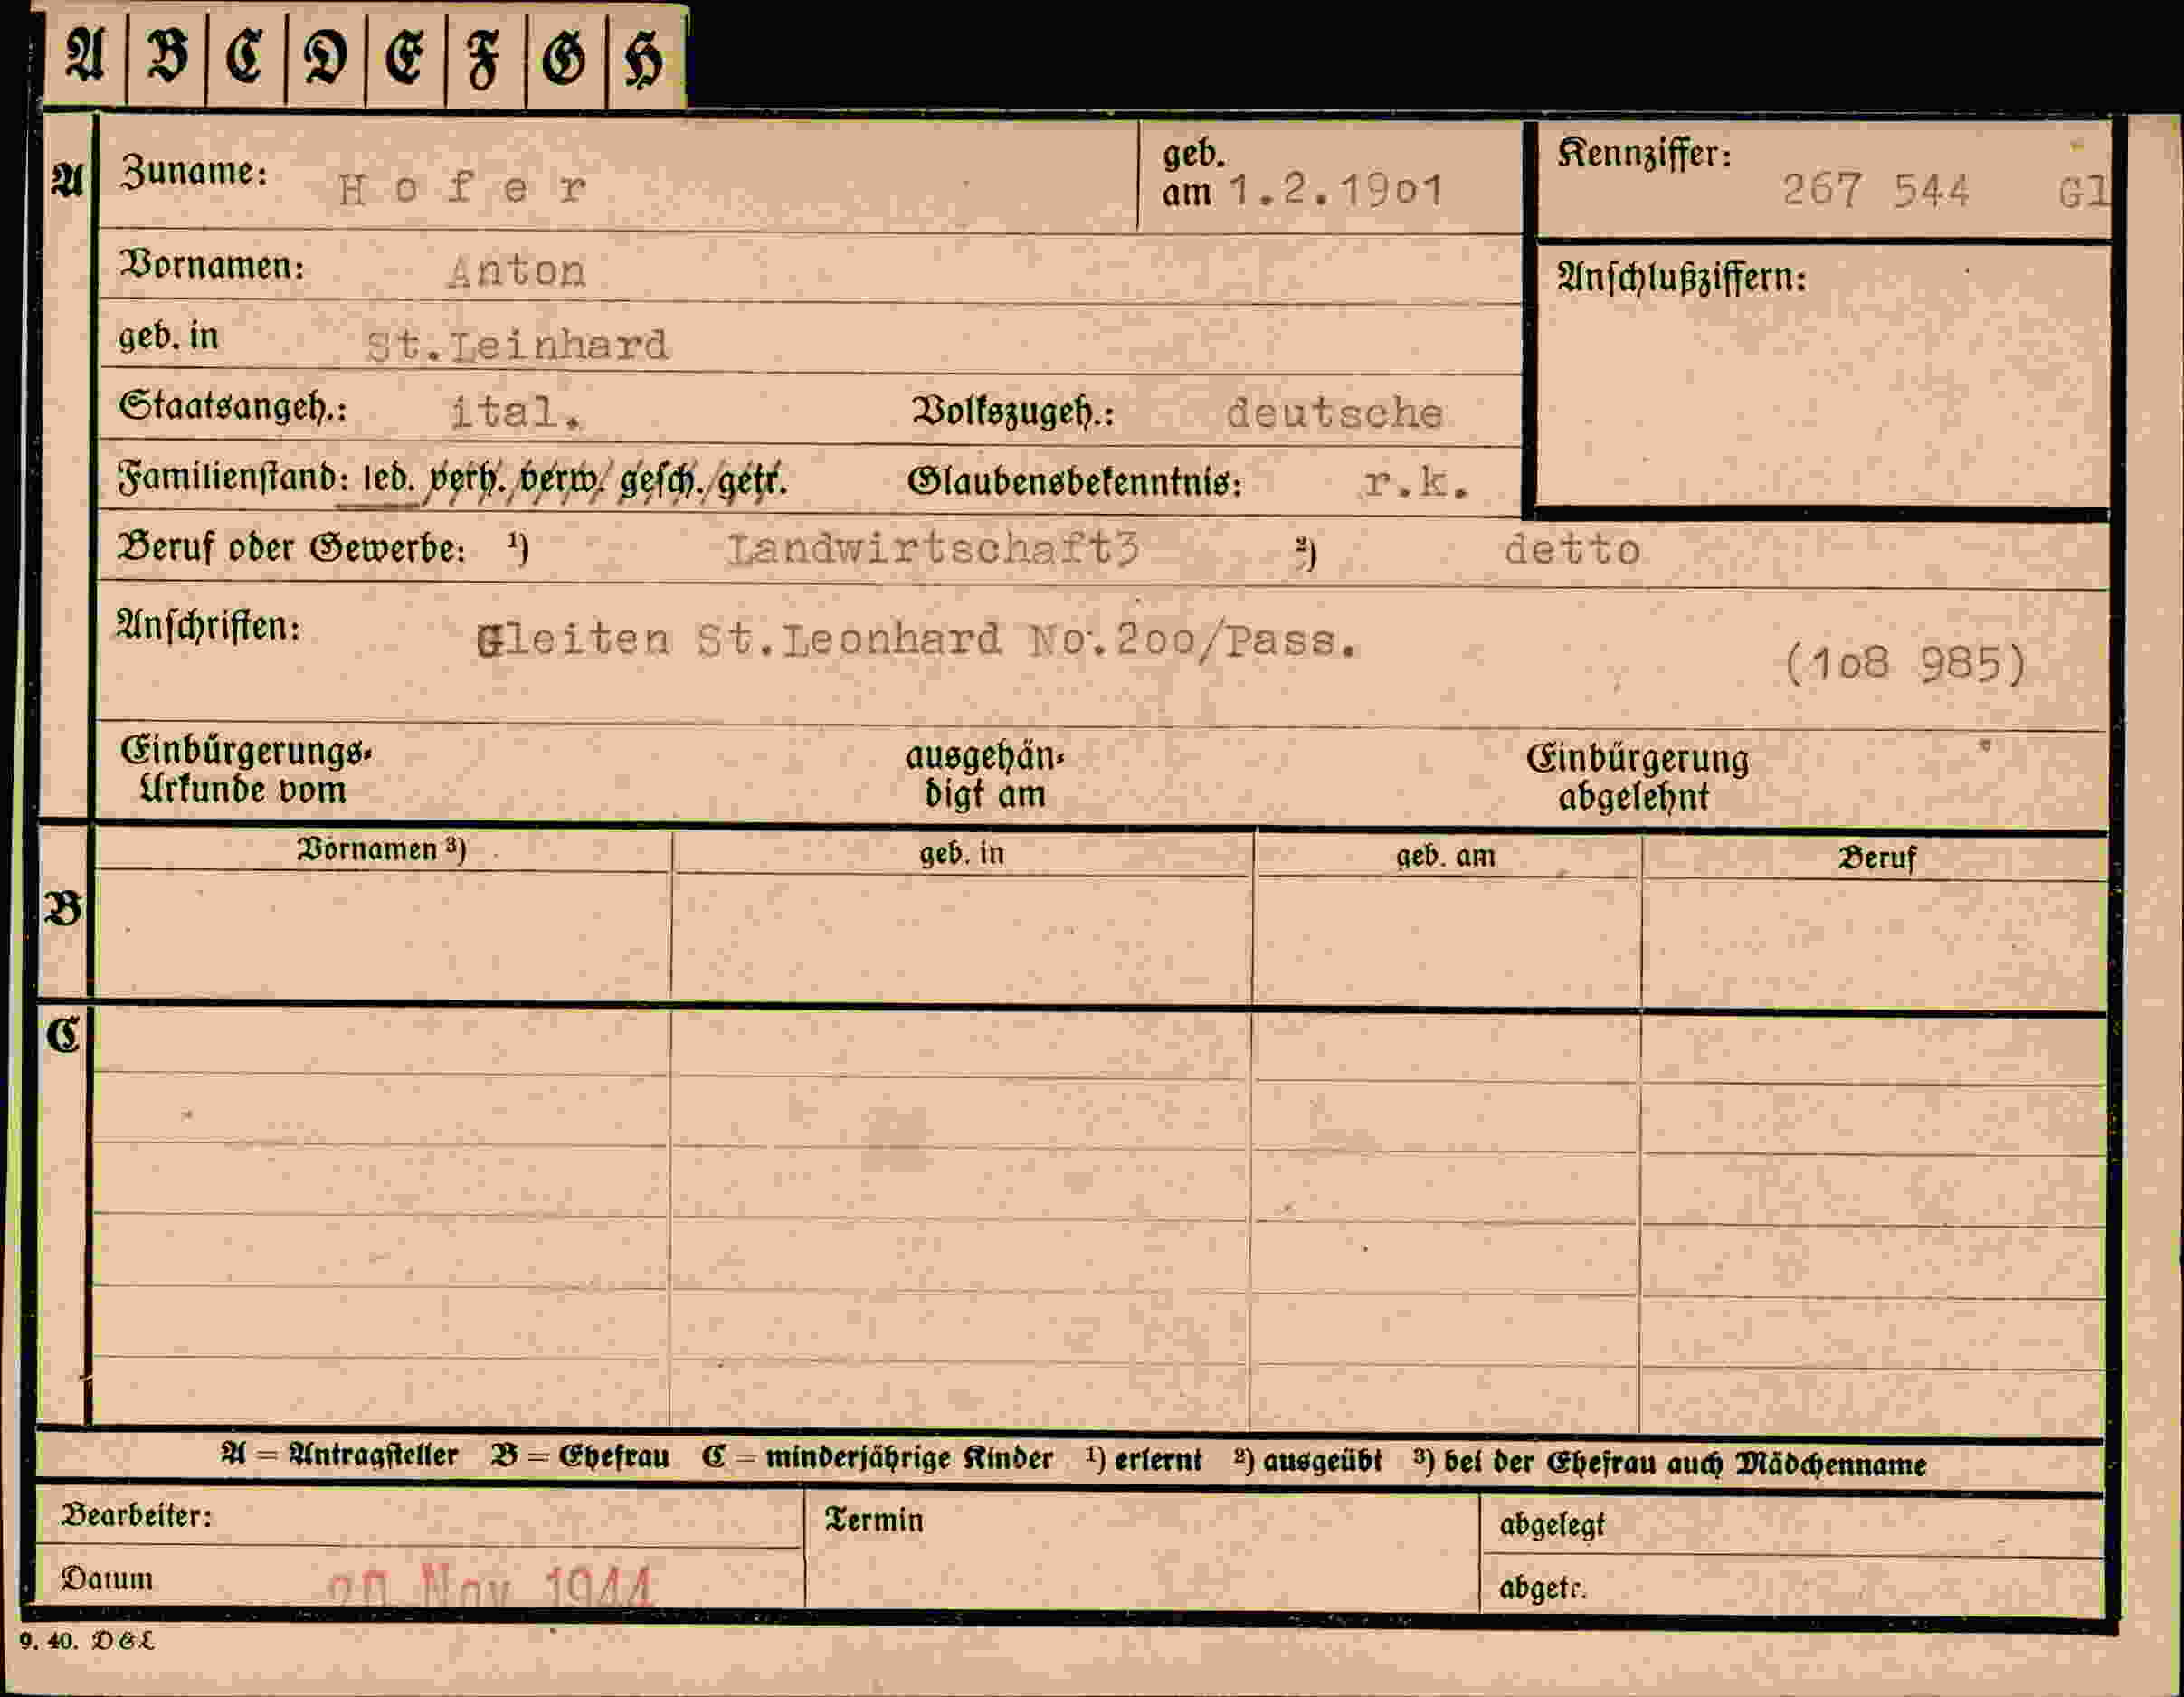 A B C D E F G H
A Zuname: Hofer geb. am 1.2.19o1 Kennziffer: 267 544 Gl
Vornamen: Anton Anschlußziffern:
geb. in St.Leinhard
Staatsangeh.: ital. Volkszugeh.: deutsche
Familienstand: led. verh. verw. gesch. getr. Glaubensbekenntnis: r.k.
Beruf oder Gewerbe: ¹) Landwirtschaft3 ²) detto
Anschriften: Gleiten St.Leonhard No.2oo/Pass. (1o8 985)
Einbürgerungs- ausgehän- Einbürgerung
Urkunde vom digt am abgelehnt
Vornamen ³) geb. in geb. am Beruf
B
C
A = Antragsteller B = Ehefrau C = minderjährige Kinder ¹) erlernt ²) ausgeübt ³) bei der Ehefrau auch Mädchenname
Bearbeiter: Termin abgelegt
Datum Nov 1944 abgetr.
9. 40. D&L